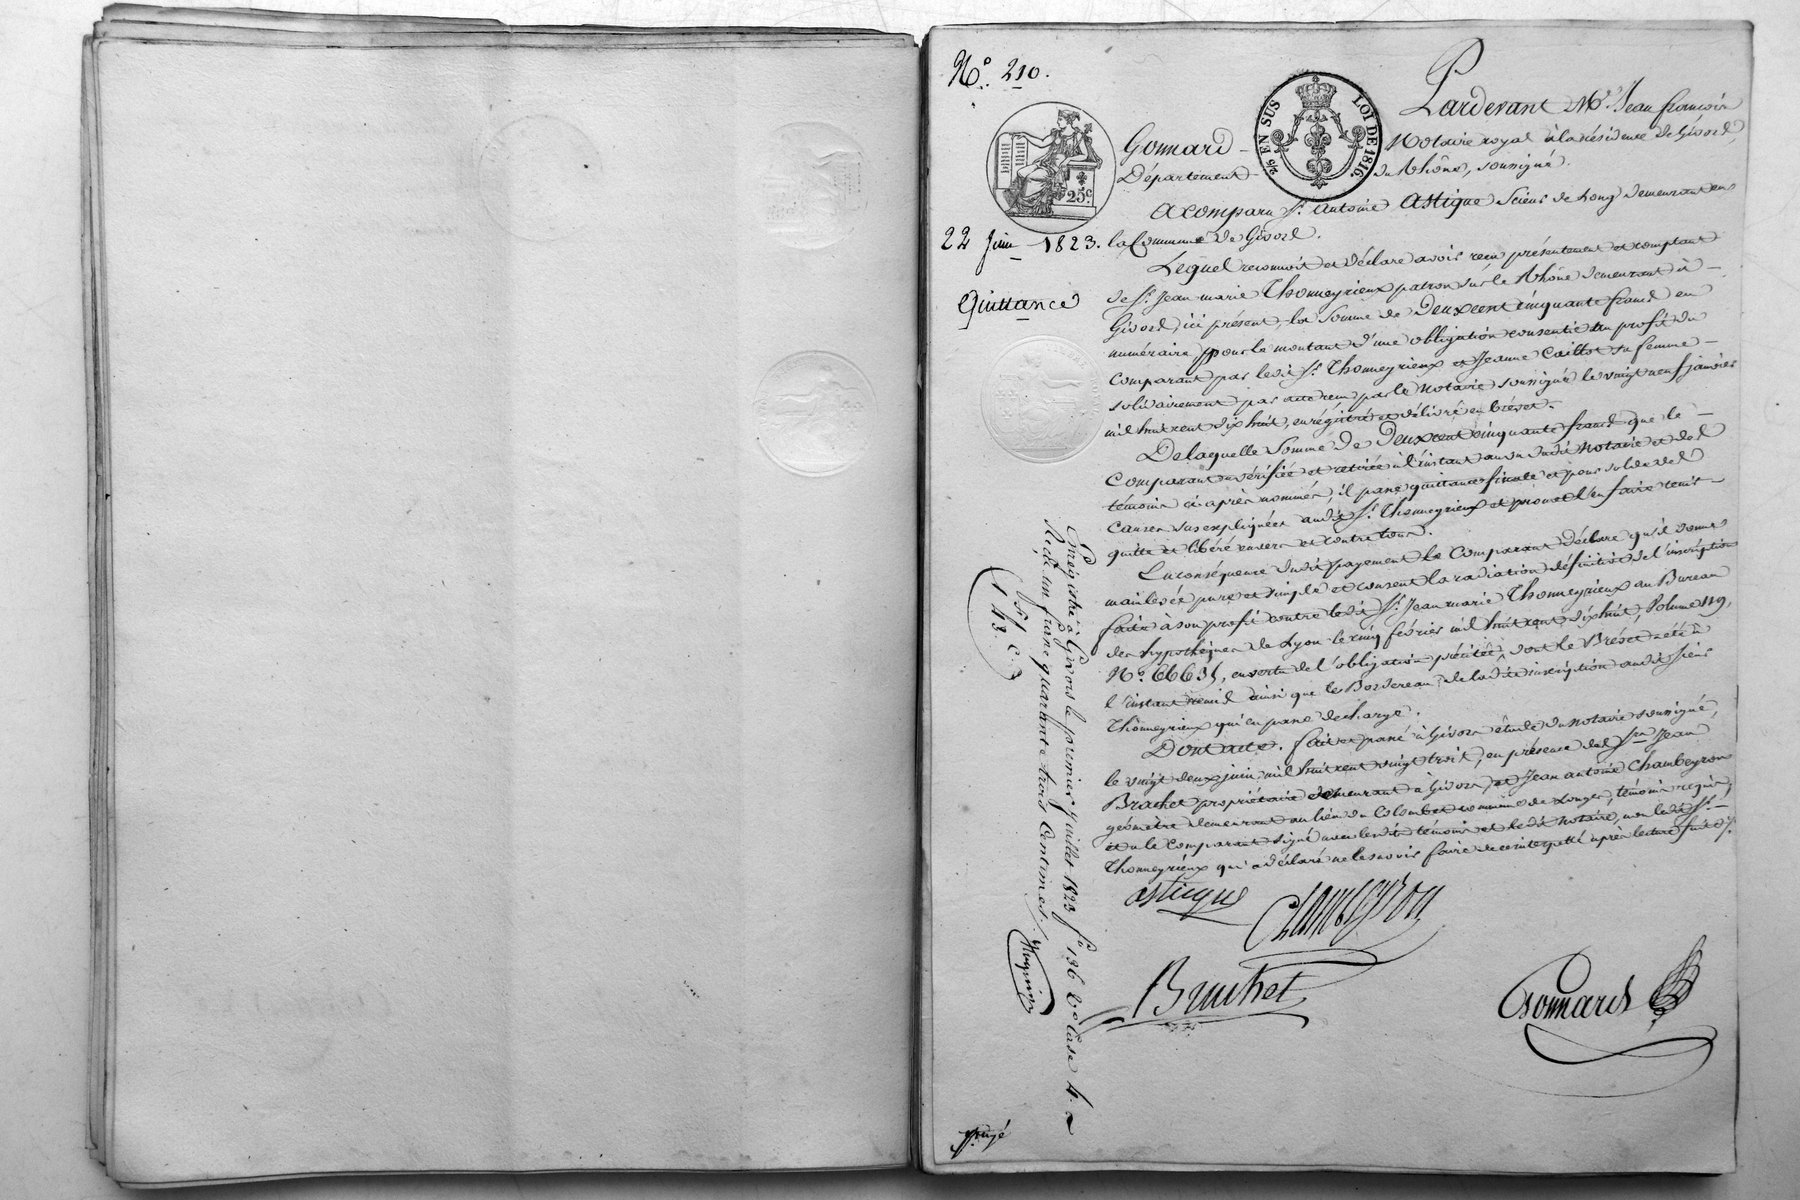 N.° 210.
2/6 EN SUS LOI DE 1816.
25.c
Pardevant M.e Jean françois
Gonnard Notaire royal à la résidence de Givors,
Département du Rhône, soussigné.
A comparu s.r Antoine Astique scieur de long demeurant en
22 Juin 1823. la Commune de Givors.
Quittance
Lequel reconnoit et déclare avoir reçu présentement et comptant
de s.r Jean marie Thonneyrieux patron sur le Rhône demeurant à
Givors, ici présent, la somme de Deux cent cinquante francs en
numéraire, pour le montant d'une obligation consentie au profit du
comparant par ledit s.r Thonneyrieux et Jeanne Caillot sa femme
solidairement par acte reçu par le notaire soussigné le vingt neuf janvier
mil huit cent dix huit, enrégistré et délivré en brévet.
De laquelle somme de Deux cent cinquante francs que le
comparant a vérifiée et retirée à l'instant au vu dudit notaire et des
témoins ci après nommés, il passe quittance finale et pour solde des
causes sus expliquées audit s.r Thonneyrieux et promet l'en faire tenir
quitte et libéré envers et contre tous.
En conséquence dudit payement le Comparant déclare qu'il donne
main levée pure et simple et consent la radiation définitive de l'inscription
faite à son profit contre ledit s.r Jean marie Thonneyrieux au Bureau
des hypothèques de Lyon le cinq février mil huit cent dix huit, Volume 119,
N.° 6635, en vertu de l'obligation précitée, dont le Brévet a été à
l'instant remis ainsi que le Bordereau de ladite inscription audit sieur
Thonneyrieux qui en passe decharge.
Dont acte. fait et passé à Givors étude du notaire soussigné,
le vingt deux juin mil huit cent vingt trois, en présence des s.rs Jean
Brachet propriétaire demeurant à Givors, et Jean antoine Chambeyron
géomètre demeurant au lieu du Colombet commune de Longes, témoins requis,
et a le comparant signé avec lesdits témoins et ledit notaire, non ledit s.r
Thonneyrieux qui a déclaré ne le savoir faire de ce interpellé après lecture faite
Asticque
Chambeyron
Brachet
Gonnard
Enregistré à Givors le premier juillet 1823 f.o 136 v.o Case 4.
Reçu un franc quarante trois Centimes.
1 f. 43. c.